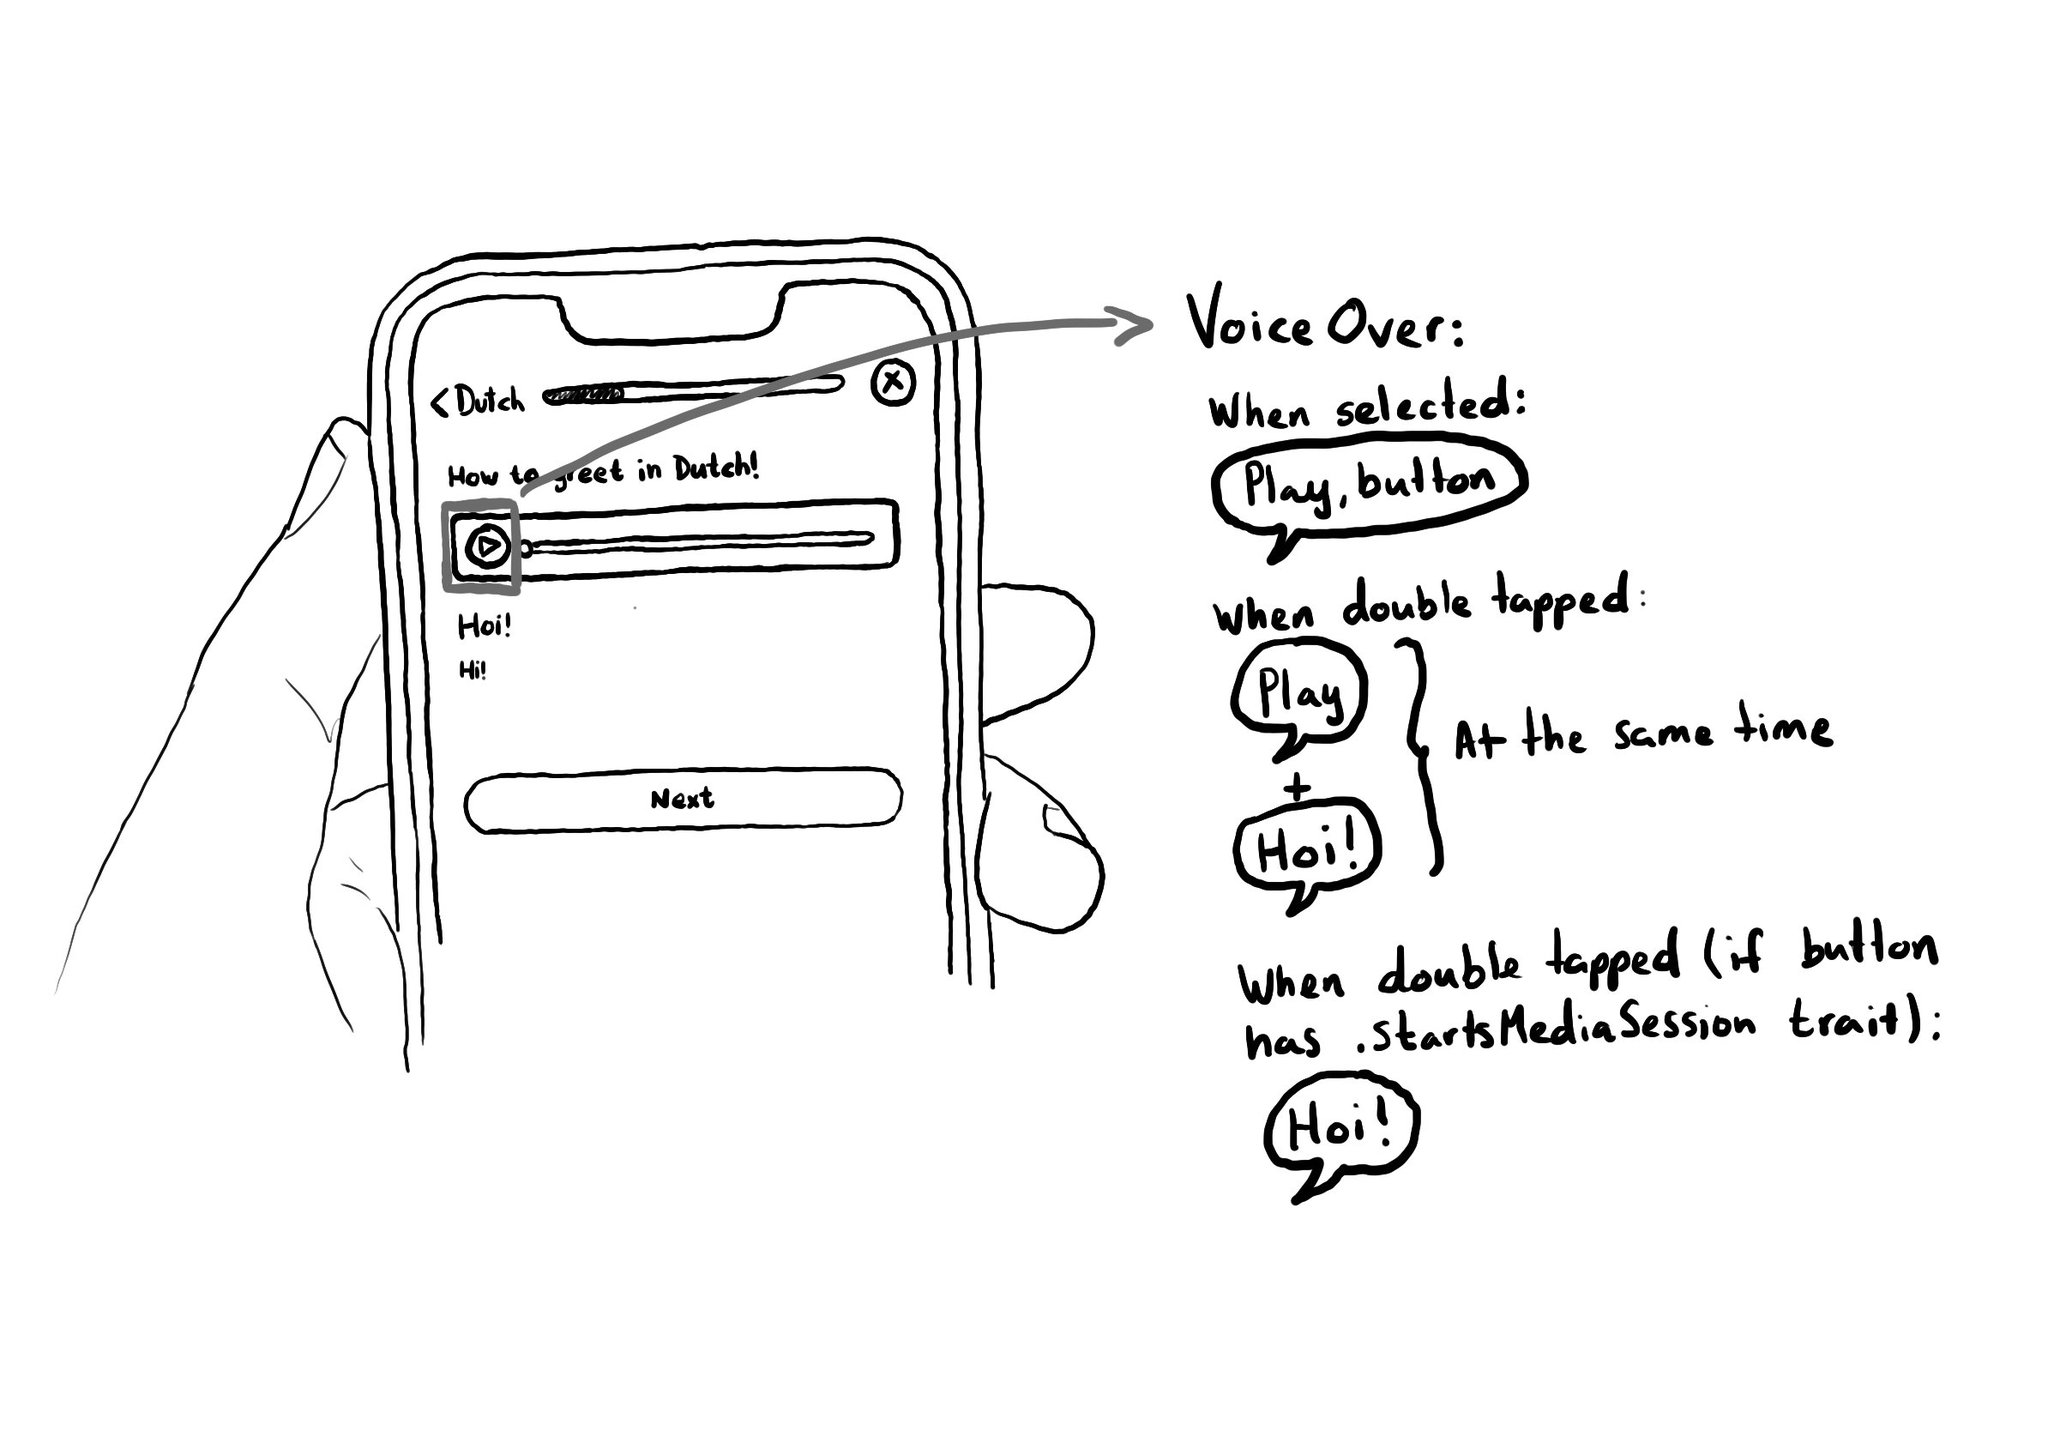 < Dutch
How to greet in Dutch!
Hoi!
Hi!
Next
VoiceOver:
When selected:
Play, button
When double tapped:
Play
+
Hoi!
At the same time
When double tapped (if button
has .startsMediaSession trait):
Hoi!